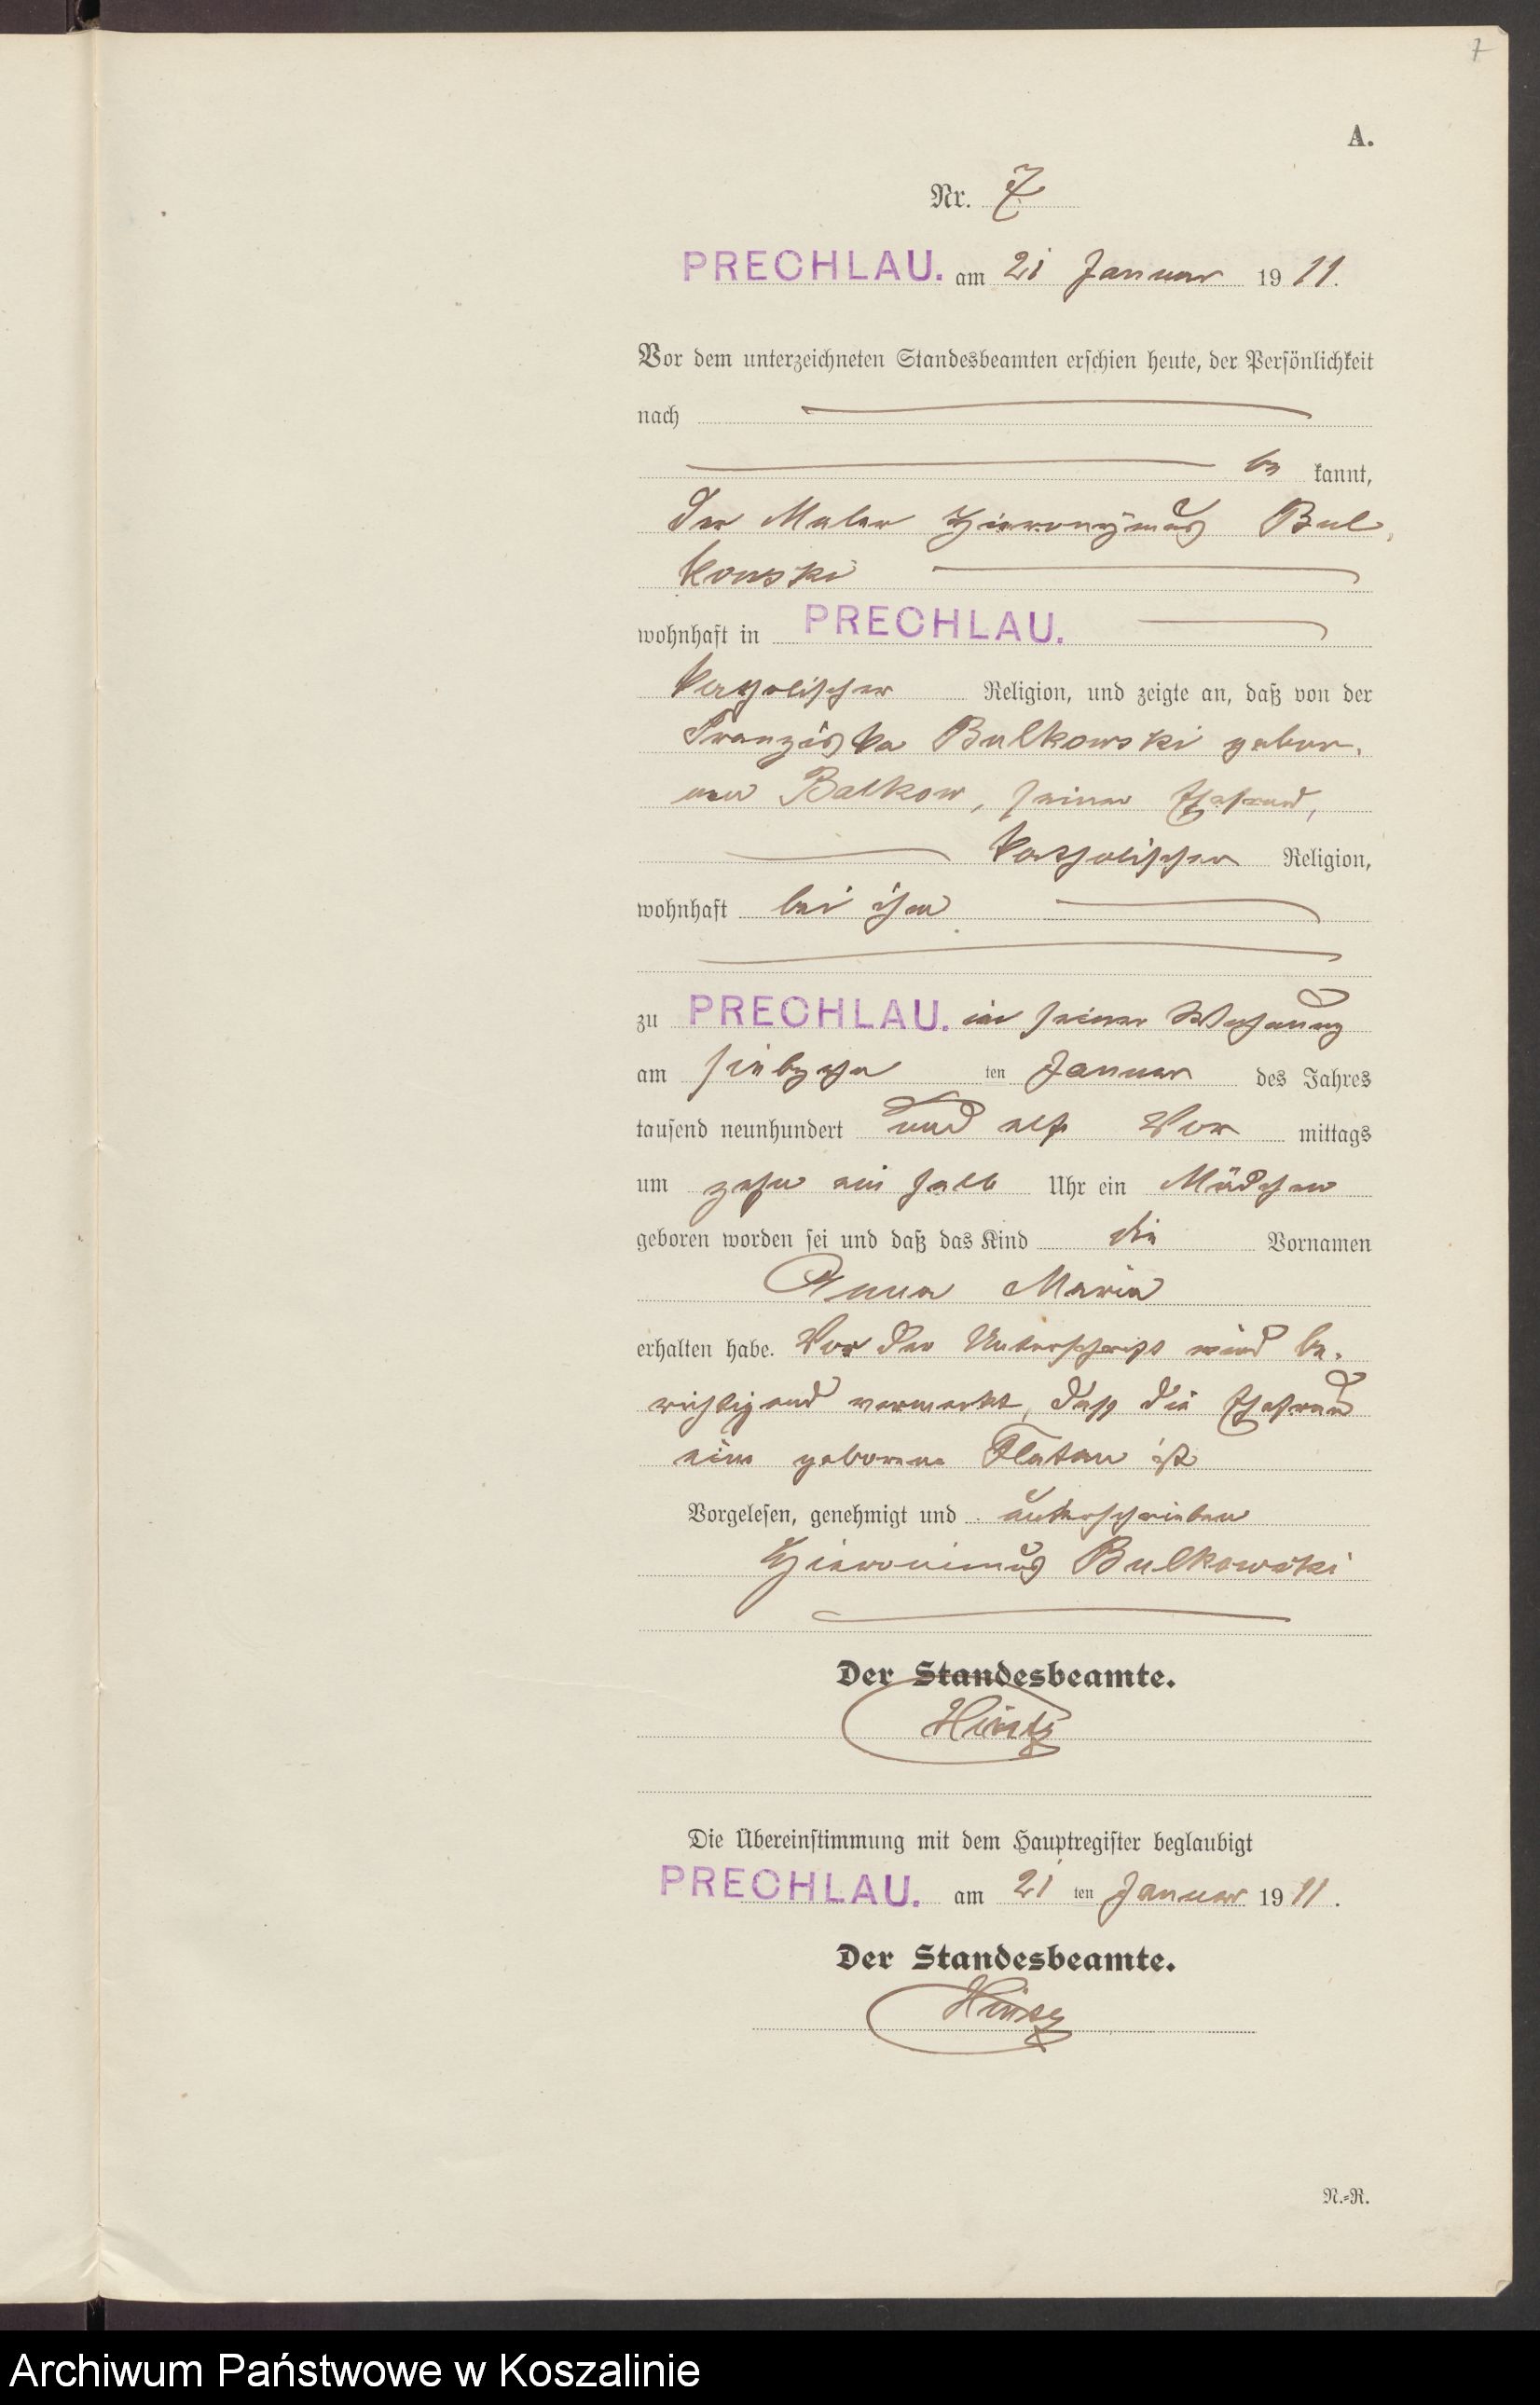 7
A.
Nr. 7
PRECHLAU. am 21 Januar 1911.
Vor dem unterzeichneten Standesbeamten erschien heute, der Persönlichkeit
nach
be kannt,
der Maler Hieronymus Bul-
kowski
wohnhaft in PRECHLAU.
katholischer Religion, und zeigte an, daß von der
Franziska Bulkowski gebor-
nen Balkow, seiner Ehefrau,
katholischer Religion,
wohnhaft bei ihm
zu PRECHLAU. in seiner Wohnung
am siebzehn ten Januar des Jahres
tausend neunhundert und elf Vor mittags
um zehn ein halb Uhr ein Mädchen
geboren worden sei und daß das Kind die Vornamen
Anna Maria
erhalten habe. Vor der Unterschrift wird be-
richtigend vermerkt, daß die Ehefrau
eine geborene Flatau ist
Vorgelesen, genehmigt und unterschrieben
Hieronimus Bulkowski
Der Standesbeamte.
Hintz
Die Übereinstimmung mit dem Hauptregister beglaubigt
PRECHLAU. am 21 ten Januar 1911.
Der Standesbeamte.
Hintz
N.=R.
Archiwum Państwowe w Koszalinie